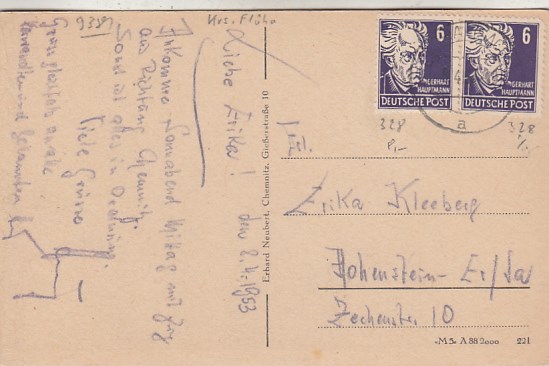 9339
Krs. Flöha
Liebe Erika! den 8.4.1953
Ankomme Sonnabend Mittag mit Zug
aus Richtung Chemnitz.
Sonst ist alles in Ordnung.
Viele Grüsse
Erhard Neubert, Chemnitz, Gießerstraße 10
6
GERHART
HAUPTMANN
DEUTSCHE POST
6
GERHART
HAUPTMANN
DEUTSCHE POST
a
328
328
Frl.
Erika Kleeberg
Hohenstein-Er/Sa
Zechenstr. 10
«M 5» A 882000 221